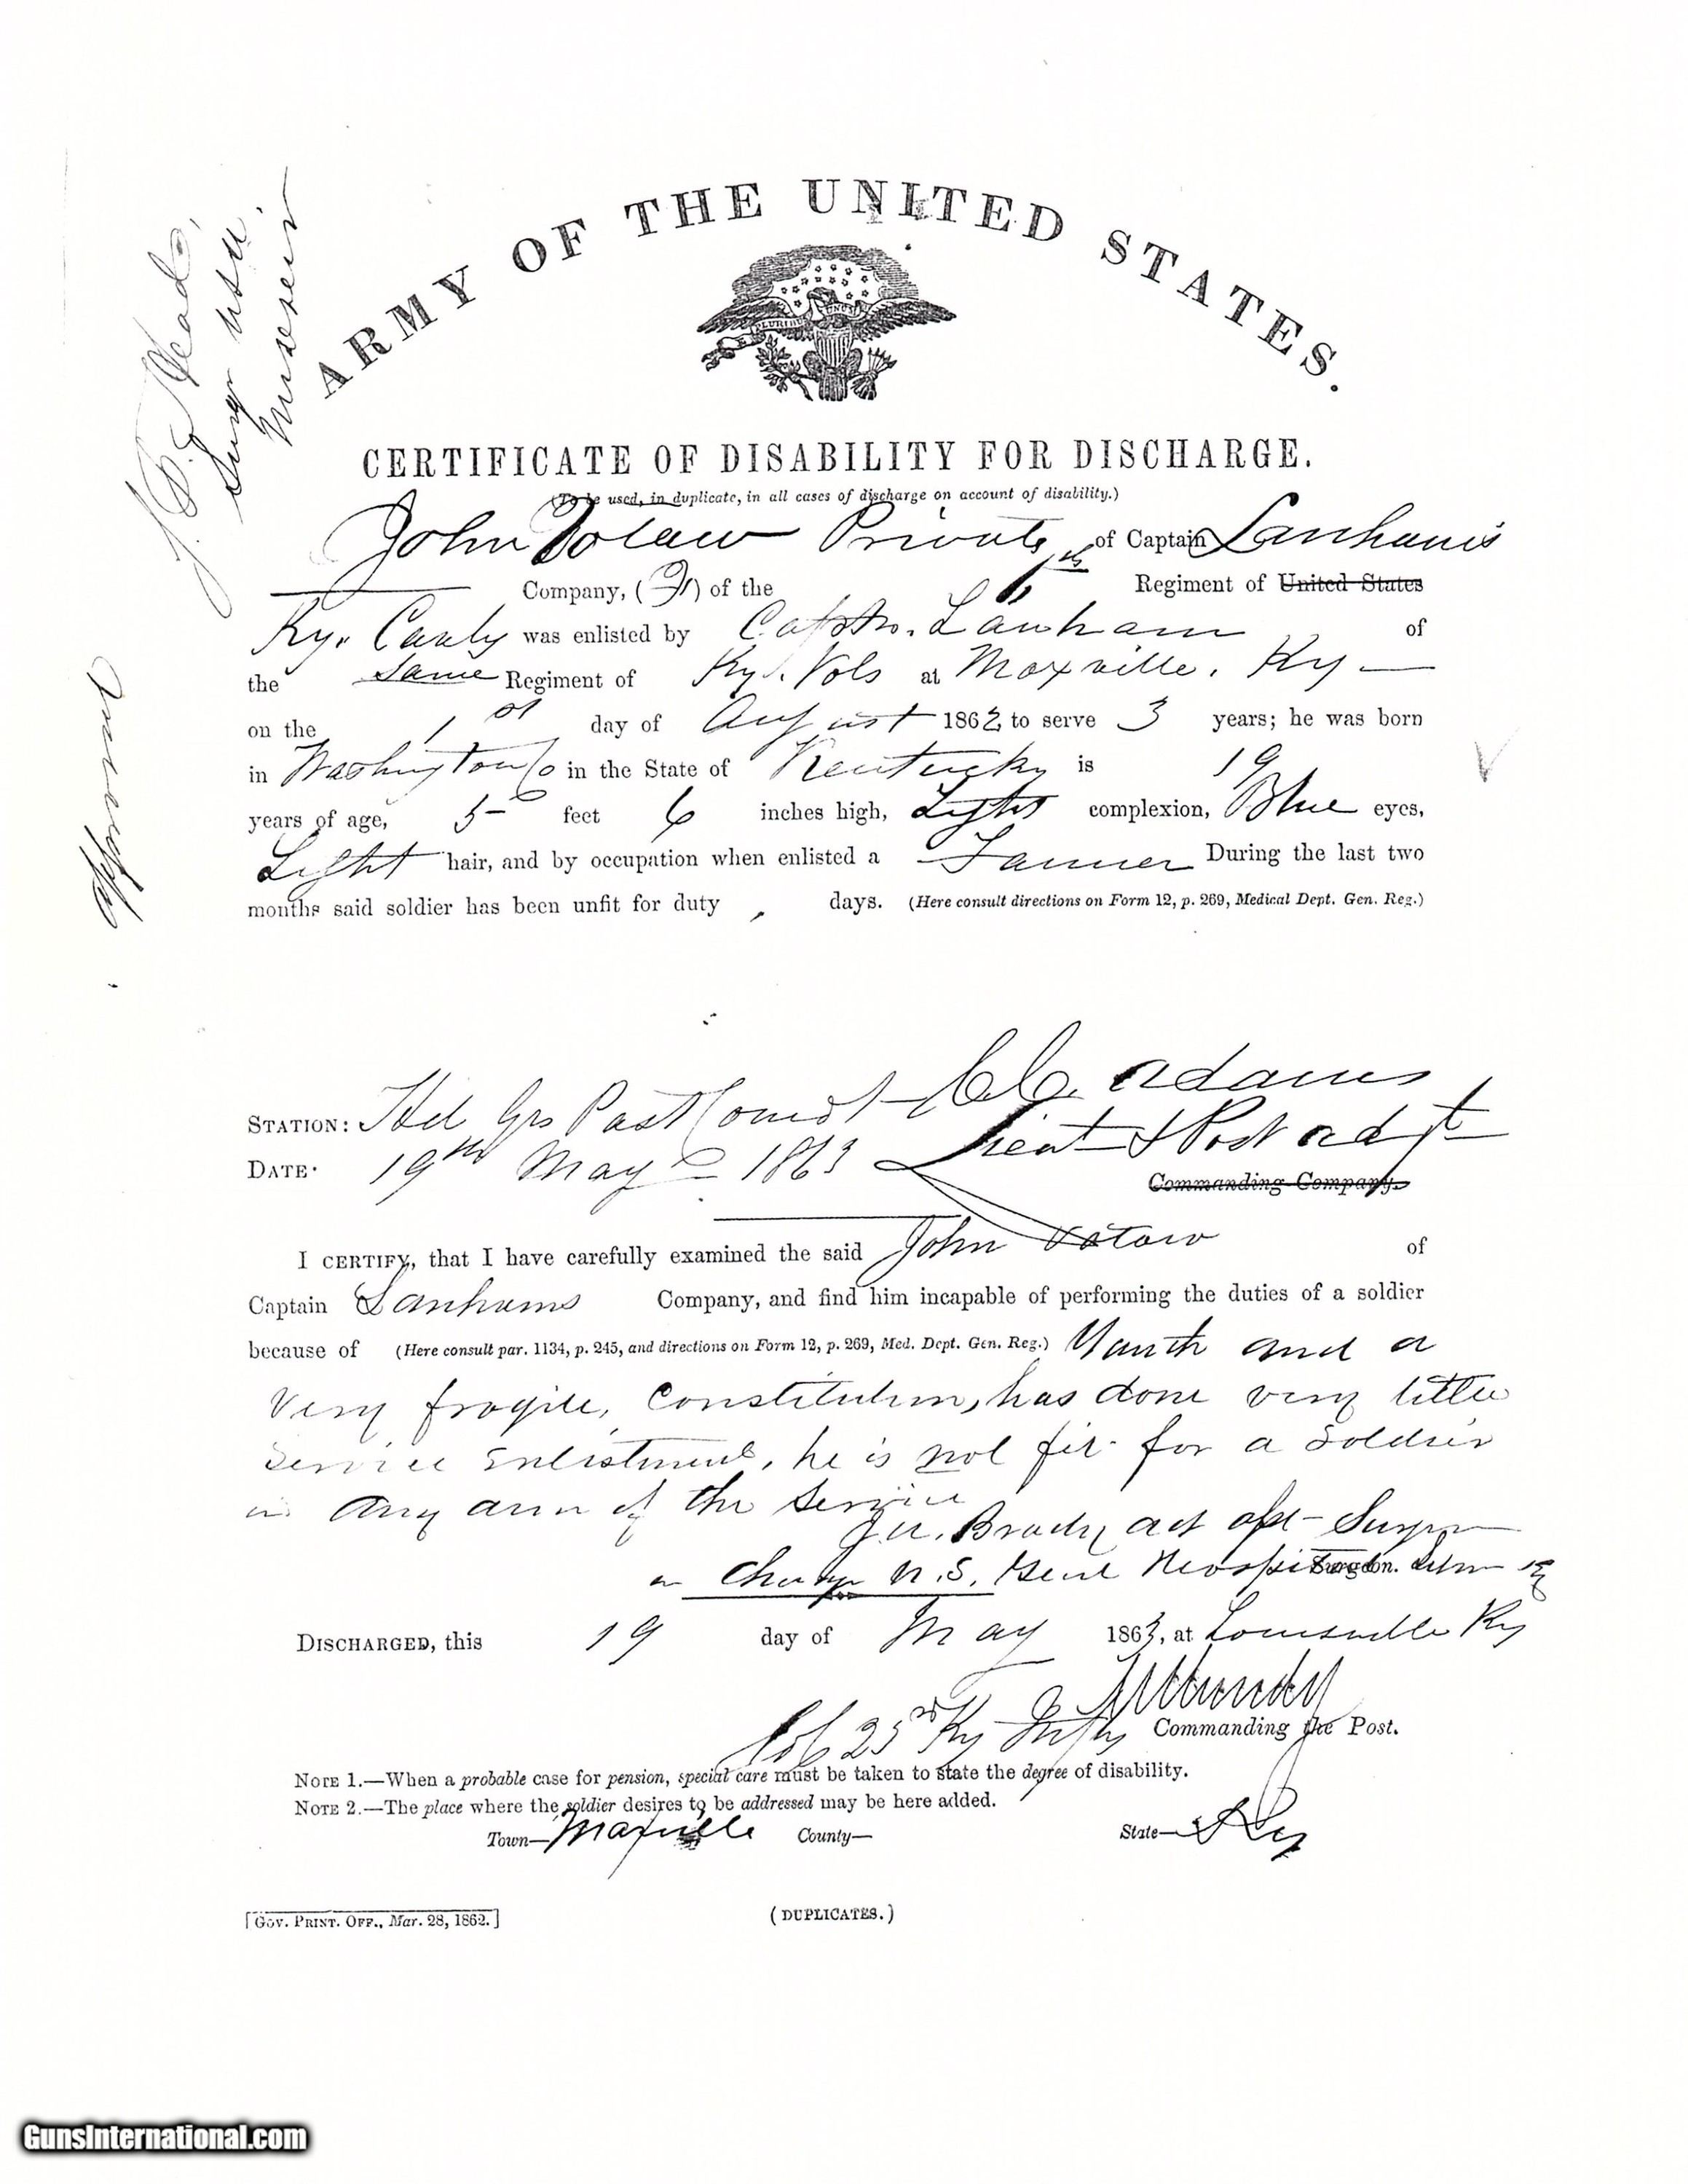 J. B. Head,
Surg USV.
approved
ARMY OF THE UNITED STATES.
PLURIBUS UNUM
CERTIFICATE OF DISABILITY FOR DISCHARGE.
(To be used, in duplicate, in all cases of discharge on account of disability.)
John Votaw Private of Captain Lanham's
Company, ( ) of the 6th Regiment of United States
Ky. Cavly was enlisted by Capt Lanham of
the Same Regiment of Ky. Vols at Maxville, Ky
on the 1st day of August 1862 to serve 3 years; he was born
in Washington Co in the State of Kentucky is 19
years of age, 5 feet 6 inches high, Light complexion, Blue eyes,
Light hair, and by occupation when enlisted a Farmer During the last two
months said soldier has been unfit for duty days. (Here consult directions on Form 12, p. 269, Medical Dept. Gen. Reg.)
STATION: Hd Qrs Post Comdt Adams
DATE. 19th May 1863 Lieut & Post adjt
Commanding Company.
I CERTIFY, that I have carefully examined the said John Votaw of
Captain Lanhams Company, and find him incapable of performing the duties of a soldier
because of (Here consult par. 1134, p. 245, and directions on Form 12, p. 269, Med. Dept. Gen. Reg.) Youth and a
Very fragile, Constitution, has done very little
Service Enlistment, he is not fit for a Soldier
in any arm of the Service
Brady act asst Surgn
in Charge U.S. Genl Hospital Surgeon.
DISCHARGED, this 19 day of May 1863, at Louisville Ky
Mundy
Col 23rd Ky Infty Commanding the Post.
NOTE 1.—When a probable case for pension, special care must be taken to state the degree of disability.
NOTE 2.—The place where the soldier desires to be addressed may be here added.
Town—Maxville County— State—Ky
[GOV. PRINT. OFF., Mar. 28, 1862.]
(DUPLICATES.)
GunsInternational.com